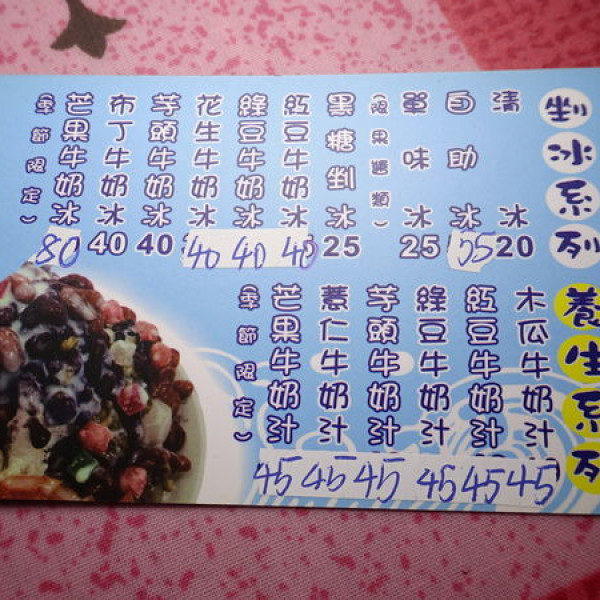 剉冰系列
清冰20
自助冰
單味冰25
(限果醬類)
黑糖剉冰25
紅豆牛奶冰40
綠豆牛奶冰40
花生牛奶冰40
芋頭牛奶冰40
布丁牛奶冰40
芒果牛奶冰80
(季節限定)
養生系列
木瓜牛奶汁45
紅豆牛奶汁45
綠豆牛奶汁45
芋頭牛奶汁45
薏仁牛奶汁45
芒果牛奶汁45
(季節限定)